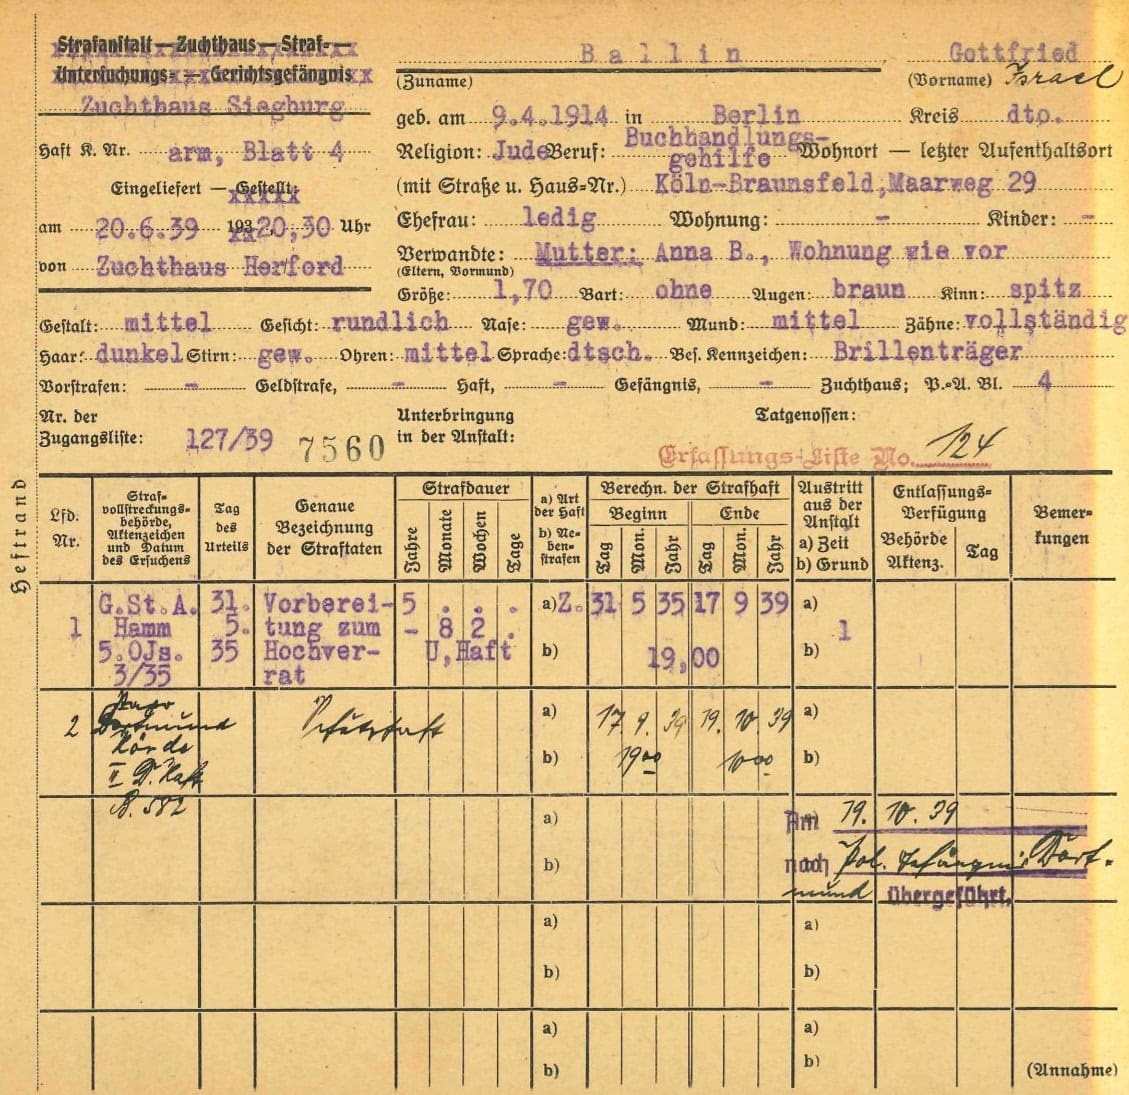 Strafanstalt — Zuchthaus — Straf- —
Untersuchungs- — Gerichtsgefängnis
Zuchthaus Siegburg
Haft K. Nr. arm, Blatt 4
Eingeliefert — Gestellt:
am 20.6.39 193 20,30 Uhr
von Zuchthaus Herford
Ballin Gottfried
(Zuname) (Vorname) Israel
geb. am 9.4.1914 in Berlin Kreis dto.
Religion: Jude Beruf: Buchhandlungs-
gehilfe Wohnort — letzter Aufenthaltsort
(mit Straße u. Haus-Nr.) Köln-Braunsfeld, Maarweg 29
Ehefrau: ledig Wohnung: - Kinder: -
Verwandte: Mutter: Anna B., Wohnung wie vor
(Eltern, Vormund)
Größe: 1,70 Bart: ohne Augen: braun Kinn: spitz
Gestalt: mittel Gesicht: rundlich Nase: gew. Mund: mittel Zähne: vollständig
Haar: dunkel Stirn: gew. Ohren: mittel Sprache: dtsch. Bes. Kennzeichen: Brillenträger
Vorstrafen: - Geldstrafe, - Haft, - Gefängnis, - Zuchthaus; P.-A. Bl. 4
Nr. der
Zugangsliste: 127/39 7560
Unterbringung
in der Anstalt:
Tatgenossen:
Erfassungs-Liste No. 124
Heftrand
Lfd.
Nr.
Straf-
vollstreckungs-
behörde,
Aktenzeichen
und Datum
des Ersuchens
Tag
des
Urteils
Genaue
Bezeichnung
der Straftaten
Strafdauer
Jahre Monate Wochen Tage
a) Art
der Haft
b) Ne-
ben-
strafen
Berechn. der Strafhaft
Beginn Ende
Tag Mon. Jahr Tag Mon. Jahr
Austritt
aus der
Anstalt
a) Zeit
b) Grund
Entlassungs-
Verfügung
Behörde
Aktenz.
Tag
Bemer-
kungen
G.St.A. 31. Vorberei- 5 . . . a) Z. 31 5 35 17 9 39 a)
1 Hamm 5. tung zum - 8 2 . 1
5.OJs. 35 Hochver- U,Haft b) 19,00 b)
3/35 rat
Stapo
2 Dortmund Schutzhaft a) 17. 9. 39 19. 10. 39 a)
Hörde
II D. Haft b) 19 00 10 00 b)
B. 582
a) Am 19. 10. 39
b) nach Pol. Gefängnis Dort-
mund übergeführt.
a) a)
b) b)
a) a)
b) b)
(Annahme)